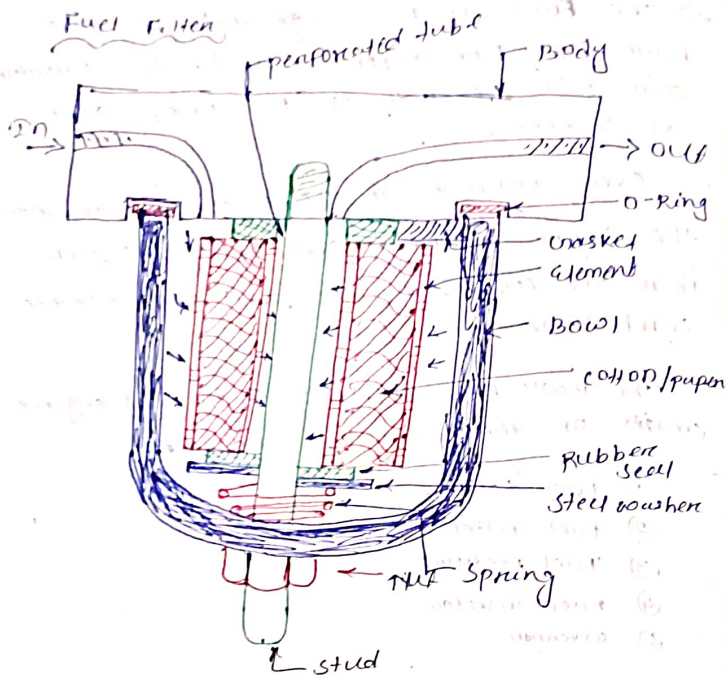 Fuel Filter
perforated tube
Body
In
Out
O-Ring
Gasket
Element
Bowl
Cotton/paper
Rubber
seal
Steel washer
Nut
Spring
Stud